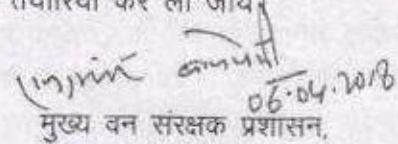 तैयारियां कर ली जाय।
06.04.2018
मुख्य वन संरक्षक प्रशासन,